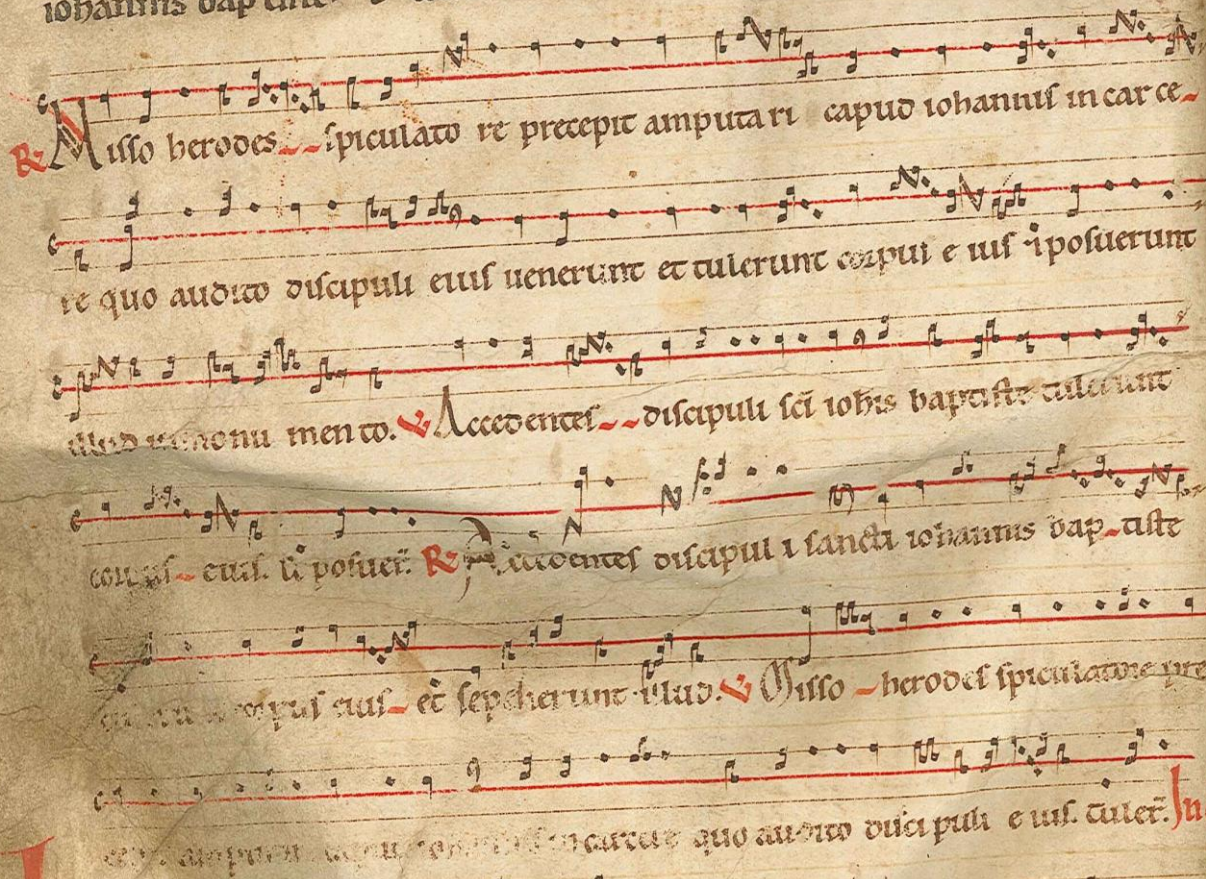 iohannis bap
R Misso herodes spiculato re precepit amputari capud iohannis in car ce
re quo audito discipuli eius uenerunt et tulerunt corpus e ius i posuerunt
illud in monu men to. V Accedentes discipuli sci iohis baptiste tulerunt
corpus eius. posuer. R Accedentes discipul i sancti iohannis bap tiste
corpus eius et sepelierunt illud. V Misso herodes spiculatore pre
in carcere quo audito disci puli e ius. tuler. In